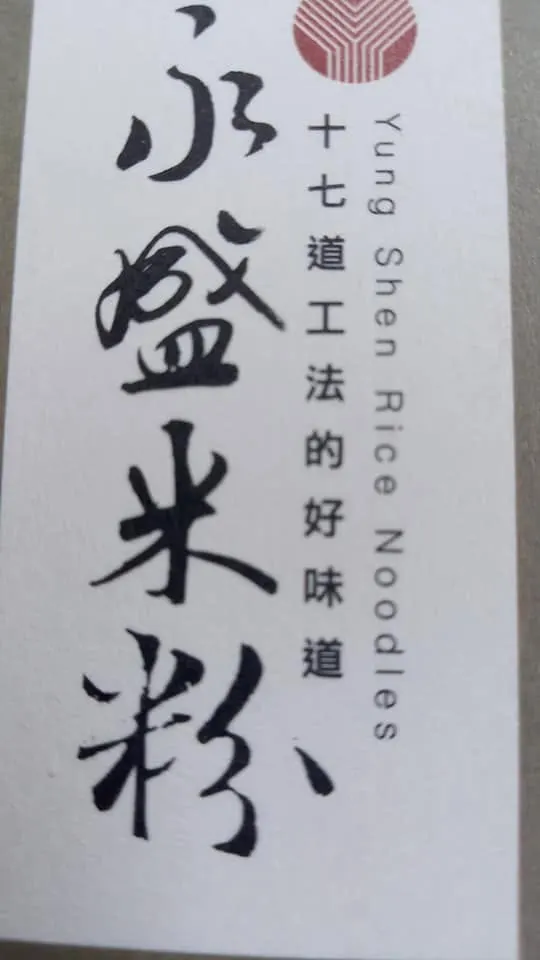 Yung Shen Rice Noodles
十七道工法的好味道
永盛米粉